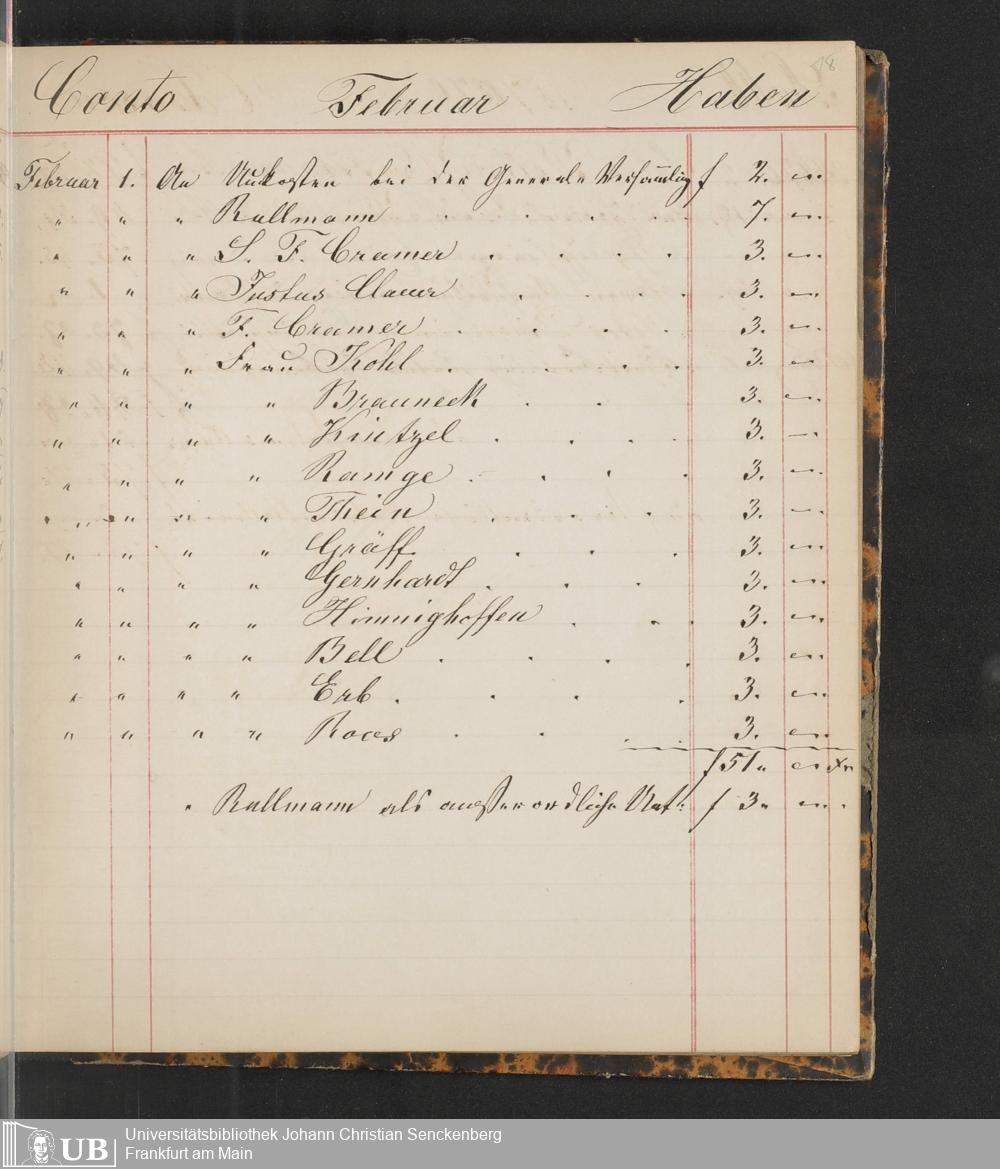 18
Conto Februar Haben
Februar 1. An Unkosten bei der General-Versammlung f 2. "
" " " Rullmann . . . . 7. "
" " " S. F. Cramer . . . . 3. "
" " " Justus Clauer . . . . 3. "
" " " F. Cramer . . . . 3. "
" " " Frau Kohl . . . 3. "
" " " " Brauneck . . 3. "
" " " " Kintzel . . . . 3. "
" " " " Ramge . . . . 3. "
" " " " Thein . . . 3. "
" " " " Gräff . . . 3. "
" " " " Gernhardt . . . 3. "
" " " " Himnighoffen . . . 3. "
" " " " Bell . . . . 3. "
" " " " Erb . . . . 3. "
" " " " Roos . . . 3. "
f 51. " xr
" Rullmann als außerordliche Unt: f 3. "
UB
Universitätsbibliothek Johann Christian Senckenberg
Frankfurt am Main